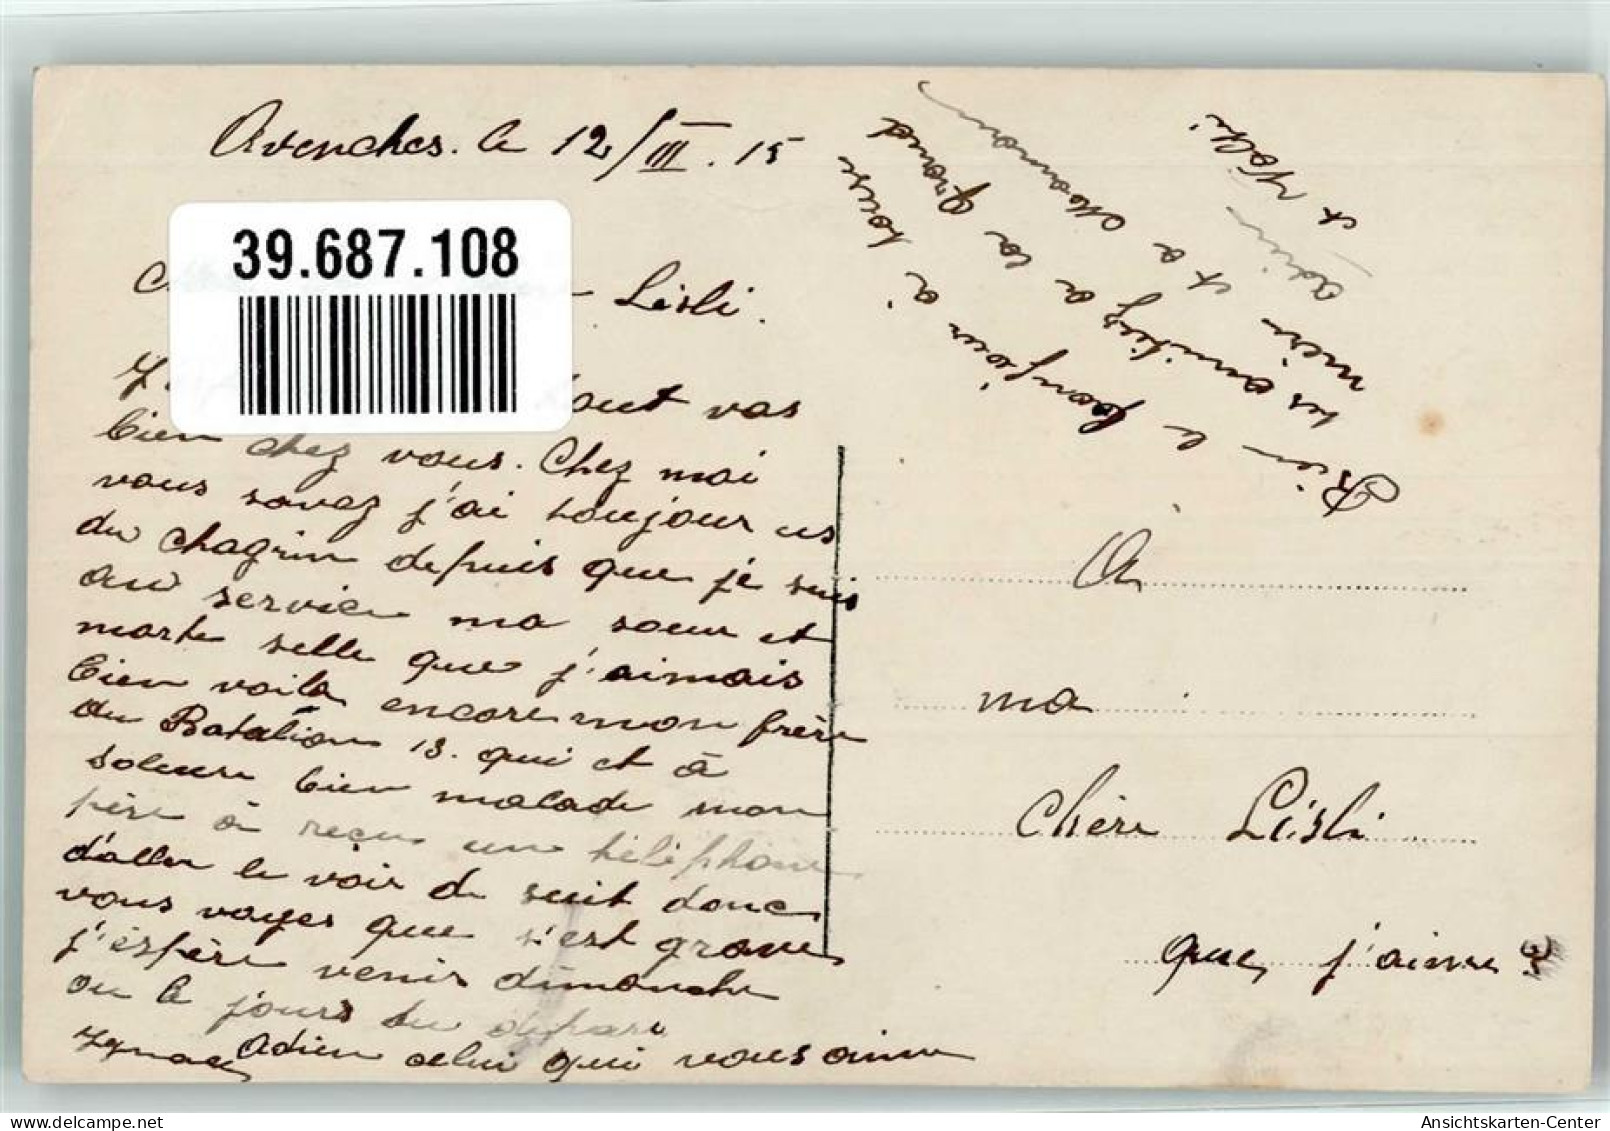 Avenches. le 12/III. 15
39.687.108
Lisli.
tout vas
bien chez vous. Chez moi
vous savez j'ai toujour us
du chagrin depuis que je suis
au service ma soeur et
morte selle que j'aimais
bien voila encore mon frère
du Batalion 13. qui et à
soleure bien malade mon
père à reçu un téléphone
d'aller le voir de suit donc
vous voyes que s'est grave
j'éspère venir dimanche
ou le jours du depare
Adieu celui qui vous aime
Ignac
Rien le bonjour à tous
tes amitiez a la grand
mèr et a Maman
Adieu
et Nölti
A
ma
chère Lisli
que j'aime
Ansichtskarten-Center